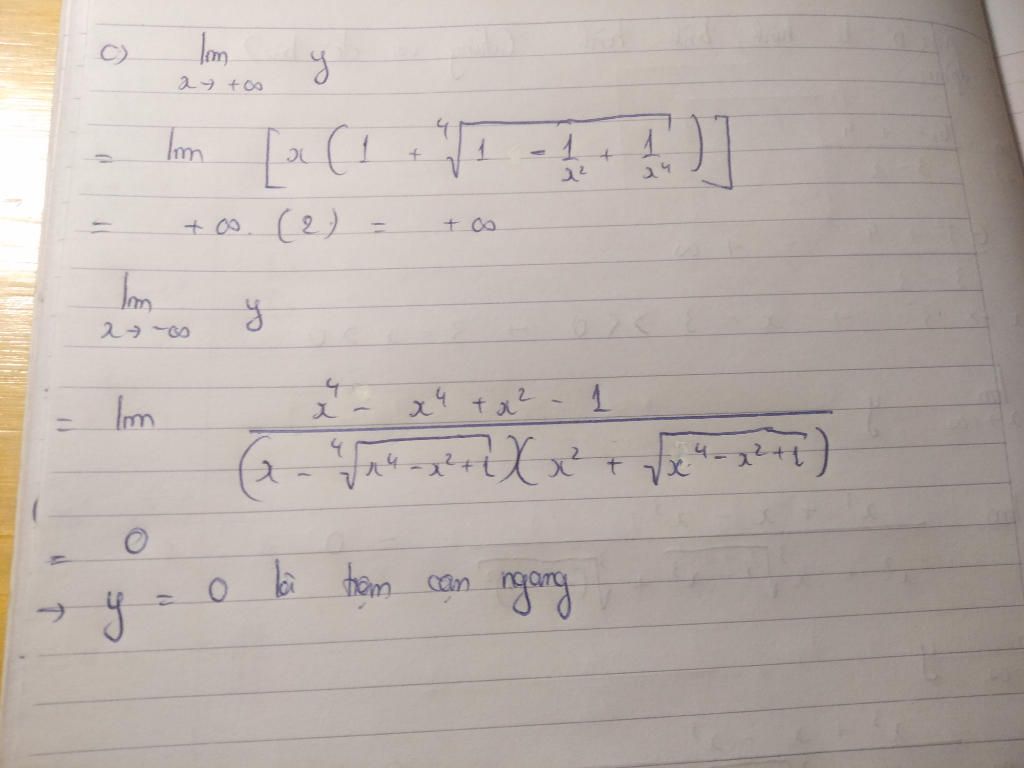 c) lim x→+∞ y
= lim [x(1 + ⁴√(1 - 1/x² + 1/x⁴))]
= +∞. (2) = +∞
lim x→-∞ y
= lim (x⁴ - x⁴ + x² - 1)/((x - ⁴√(x⁴ - x² + 1))(x² + √(x⁴ - x² + 1)))
= 0
→ y = 0 là tiệm cận ngang